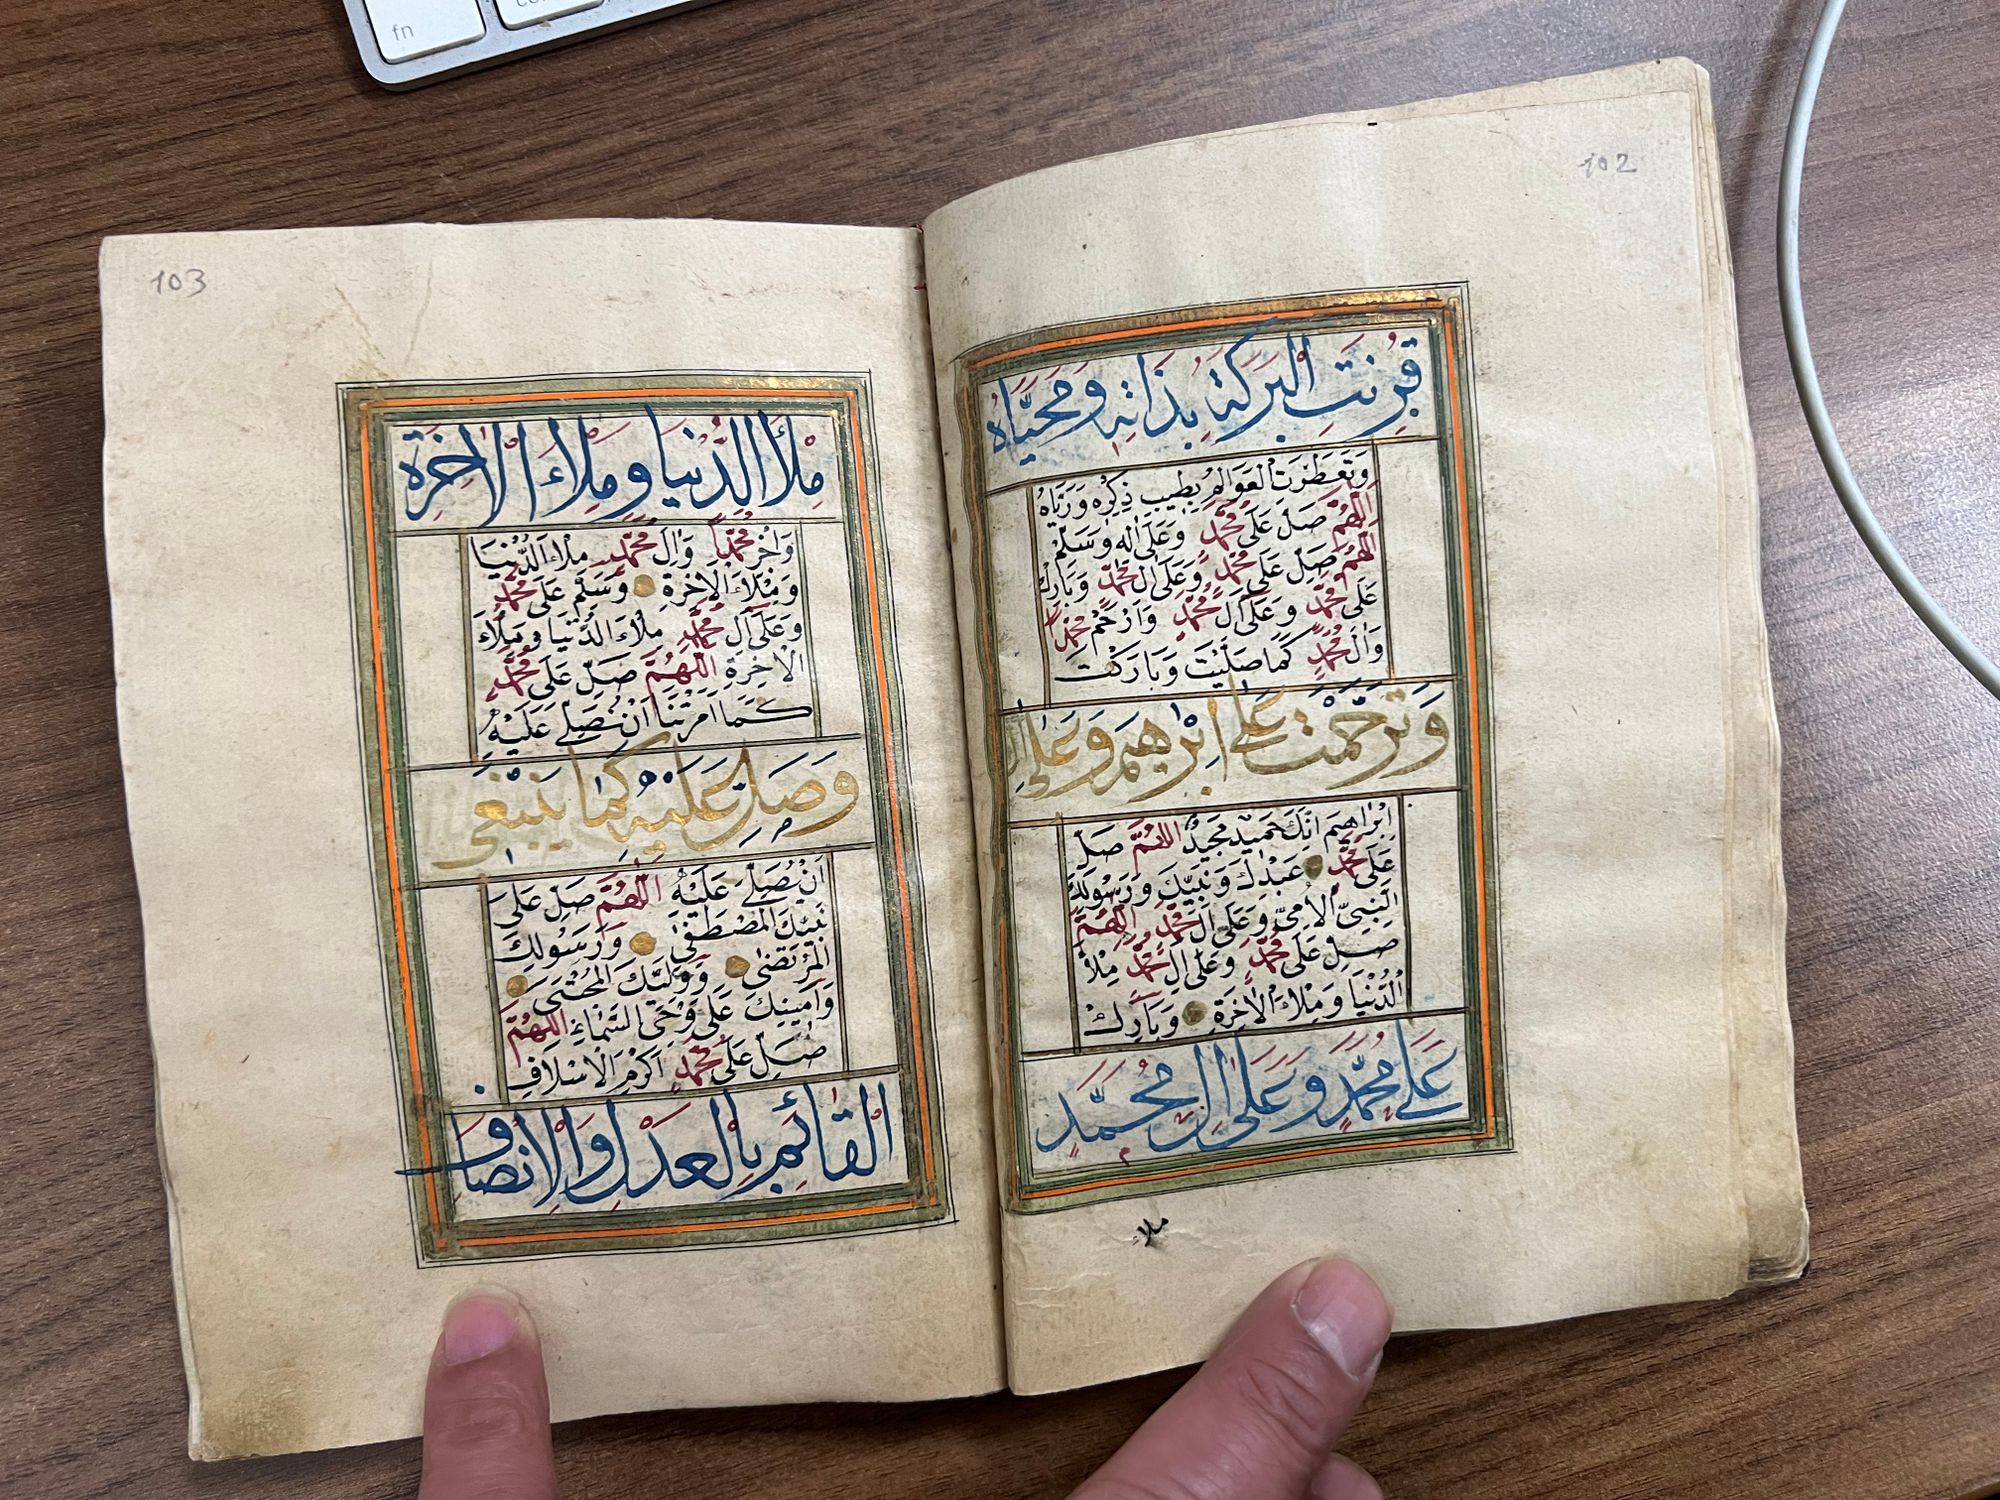 fn
102
قُرِنَتِ الْبَرَكَةُ بِذَاتِهِ وَمُحَيَّاهُ
وَتَعَطَّرَتِ الْعَوَالِمُ بِطِيبِ ذِكْرِهِ وَرَيَّاهُ
اَللّٰهُمَّ صَلِّ عَلٰى مُحَمَّدٍ وَعَلٰى اٰلِهِ وَسَلِّمْ
اَللّٰهُمَّ صَلِّ عَلٰى مُحَمَّدٍ وَعَلٰى اٰلِ مُحَمَّدٍ وَبَارِكْ
عَلٰى مُحَمَّدٍ وَعَلٰى اٰلِ مُحَمَّدٍ وَارْحَمْ مُحَمَّدًا
وَاٰلَ مُحَمَّدٍ كَمَا صَلَّيْتَ وَبَارَكْتَ
وَتَرَحَّمْتَ عَلٰى اِبْرٰهِيمَ وَعَلٰى اٰلِ
اِبْرَاهِيمَ اِنَّكَ حَمِيدٌ مَجِيدٌ اَللّٰهُمَّ صَلِّ
عَلٰى مُحَمَّدٍ عَبْدِكَ وَنَبِيِّكَ وَرَسُولِكَ
النَّبِيِّ الْاُمِّيِّ وَعَلٰى اٰلِ مُحَمَّدٍ اَللّٰهُمَّ
صَلِّ عَلٰى مُحَمَّدٍ وَعَلٰى اٰلِ مُحَمَّدٍ مِلْأَ
الدُّنْيَا وَمِلْاءَ الْاٰخِرَةِ وَبَارِكْ
عَلٰى مُحَمَّدٍ وَعَلٰى اٰلِ مُحَمَّدٍ
ملاء
103
مِلْأَ الدُّنْيَا وَمِلْاءَ الْاٰخِرَةِ
وَاخْرُ مُحَمَّدًا وَاٰلَ مُحَمَّدٍ مِلْاءَ الدُّنْيَا
وَمِلْاءَ الْاٰخِرَةِ وَسَلِّمْ عَلٰى مُحَمَّدٍ
وَعَلٰى اٰلِ مُحَمَّدٍ مِلْاءَ الدُّنْيَا وَمِلْاءَ
الْاٰخِرَةِ اَللّٰهُمَّ صَلِّ عَلٰى مُحَمَّدٍ
كَمَا اَمَرْتَنَا اَنْ نُصَلِّيَ عَلَيْهِ
وَصَلِّ عَلَيْهِ كَمَا يَنْبَغِي
اَنْ يُصَلّٰى عَلَيْهِ اَللّٰهُمَّ صَلِّ عَلٰى
نَبِيِّكَ الْمُصْطَفٰى وَرَسُولِكَ
الْمُرْتَضٰى وَوَلِيِّكَ الْمُجْتَبٰى
وَاَمِينِكَ عَلٰى وَحْيِ السَّمَاءِ اَللّٰهُمَّ
صَلِّ عَلٰى مُحَمَّدٍ اَكْرَمِ الْاَسْلَافِ
الْقَائِمِ بِالْعَدْلِ وَالْاِنْصَافِ